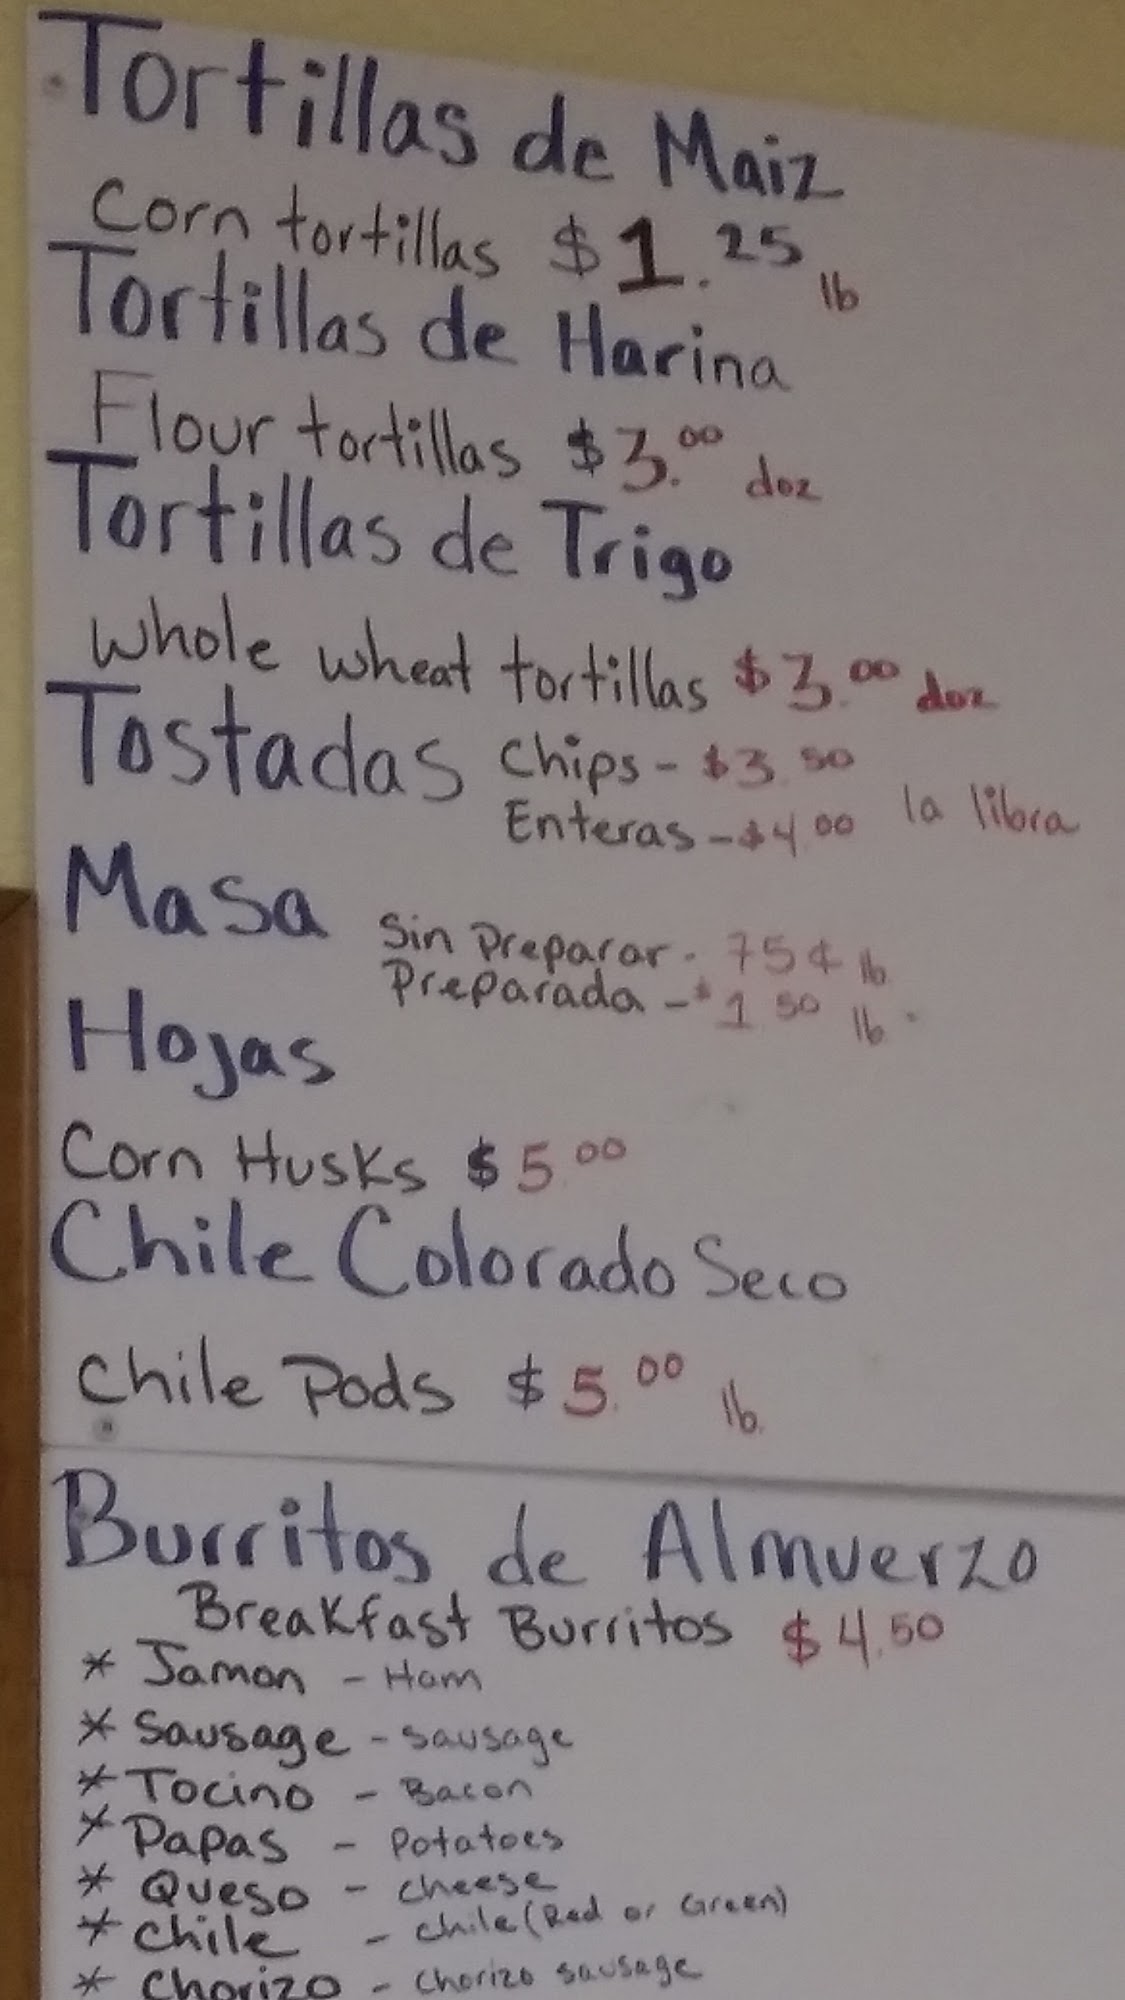 Tortillas de Maiz
Corn tortillas $1.25 lb
Tortillas de Harina
Flour tortillas $3.00 doz
Tortillas de Trigo
Whole wheat tortillas $3.00 doz
Tostadas Chips - $3.50
Enteras - $4.00 la libra
Masa Sin Preparar - 75¢ lb
Preparada - $1.50 lb.
Hojas
Corn Husks $5.00
Chile Colorado Seco
Chile Pods $5.00 lb.
Burritos de Almuerzo
Breakfast Burritos $4.50
* Jamon - Ham
* Sausage - sausage
* Tocino - Bacon
* Papas - Potatoes
* Queso - cheese
* Chile - chile (Red or Green)
* Chorizo - Chorizo sausage